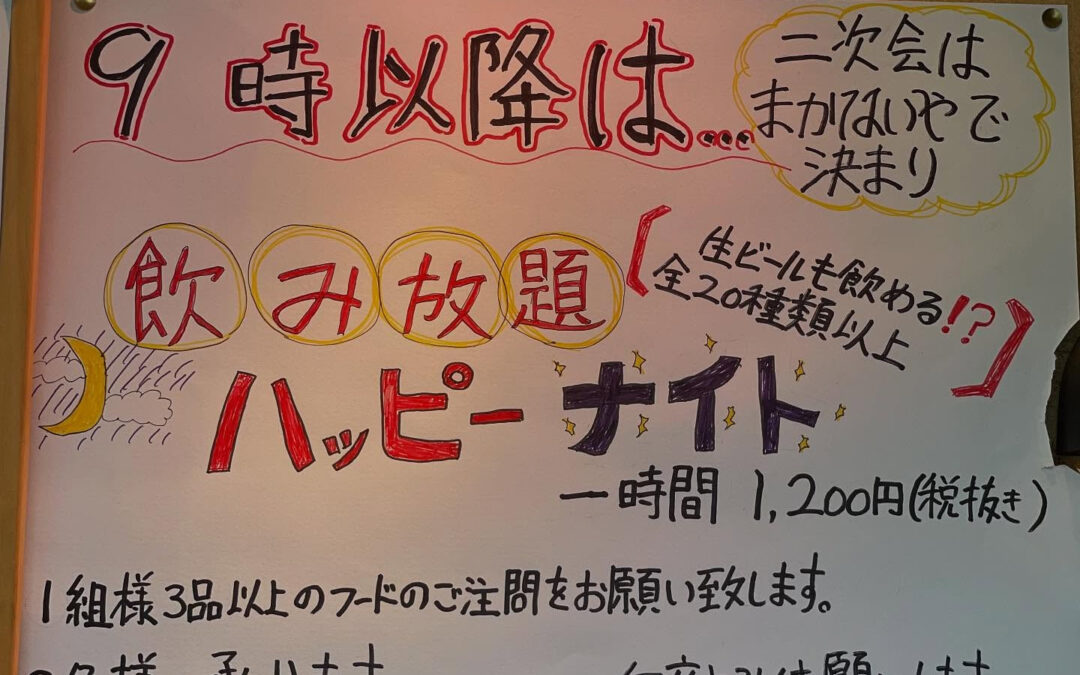 9時以降は...
二次会は
まかないやで
決まり
飲み放題
生ビールも飲める!?
全20種類以上
ハッピーナイト
一時間 1,200円(税抜き)
1組様3品以上のフードのご注問をお願い致します。